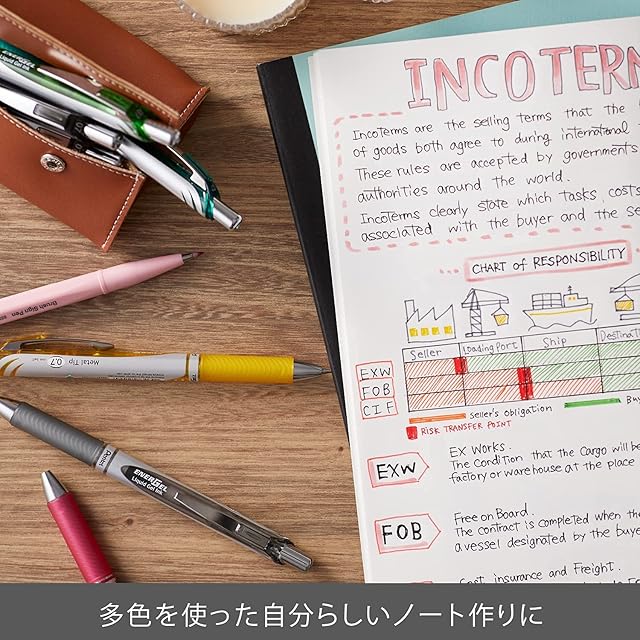 INCOTERM
Incoterms are the selling terms that the
of goods both agree to during international
These rules are accepted by governments
authorities around the world.
Incoterms clearly state which tasks, costs
associated with the buyer and the se
CHART of RESPONSIBILITY
Seller Loading Port Ship Destinat
EXW
FOB
CIF
Seller's obligation Buy
RISK TRANSFER POINT
EXW
EX Works
The Condition that the Cargo will be
factory or warehouse at the place
FOB
Free on Board.
The contract is completed when the
a vessel designated by the buye
Cost, insurance and Freight.
ENERGEL
Liquid Gel Ink
Brush Sign Pen
Metal Tip 0.7
Pentel
ENERGEL
Liquid Gel Ink
多色を使った自分らしいノート作りに